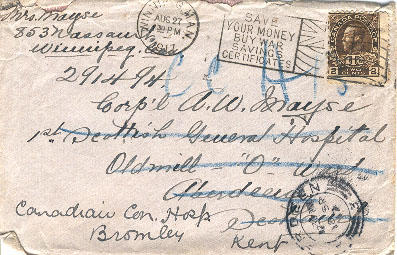 Mrs. Mayse
853 Nassau
Winnipeg
WINNIPEG MAN.
AUG 27
PM
1917
SAVE
YOUR MONEY
BUY WAR
SAVINGS
CERTIFICATES
2
CENTS
2
291494
Corp'l A. W. Mayse
1st Scottish General Hospital
Oldmill - "O" ward
Aberdeen
Scotland
Canadian Con. Hosp
Bromley
Kent